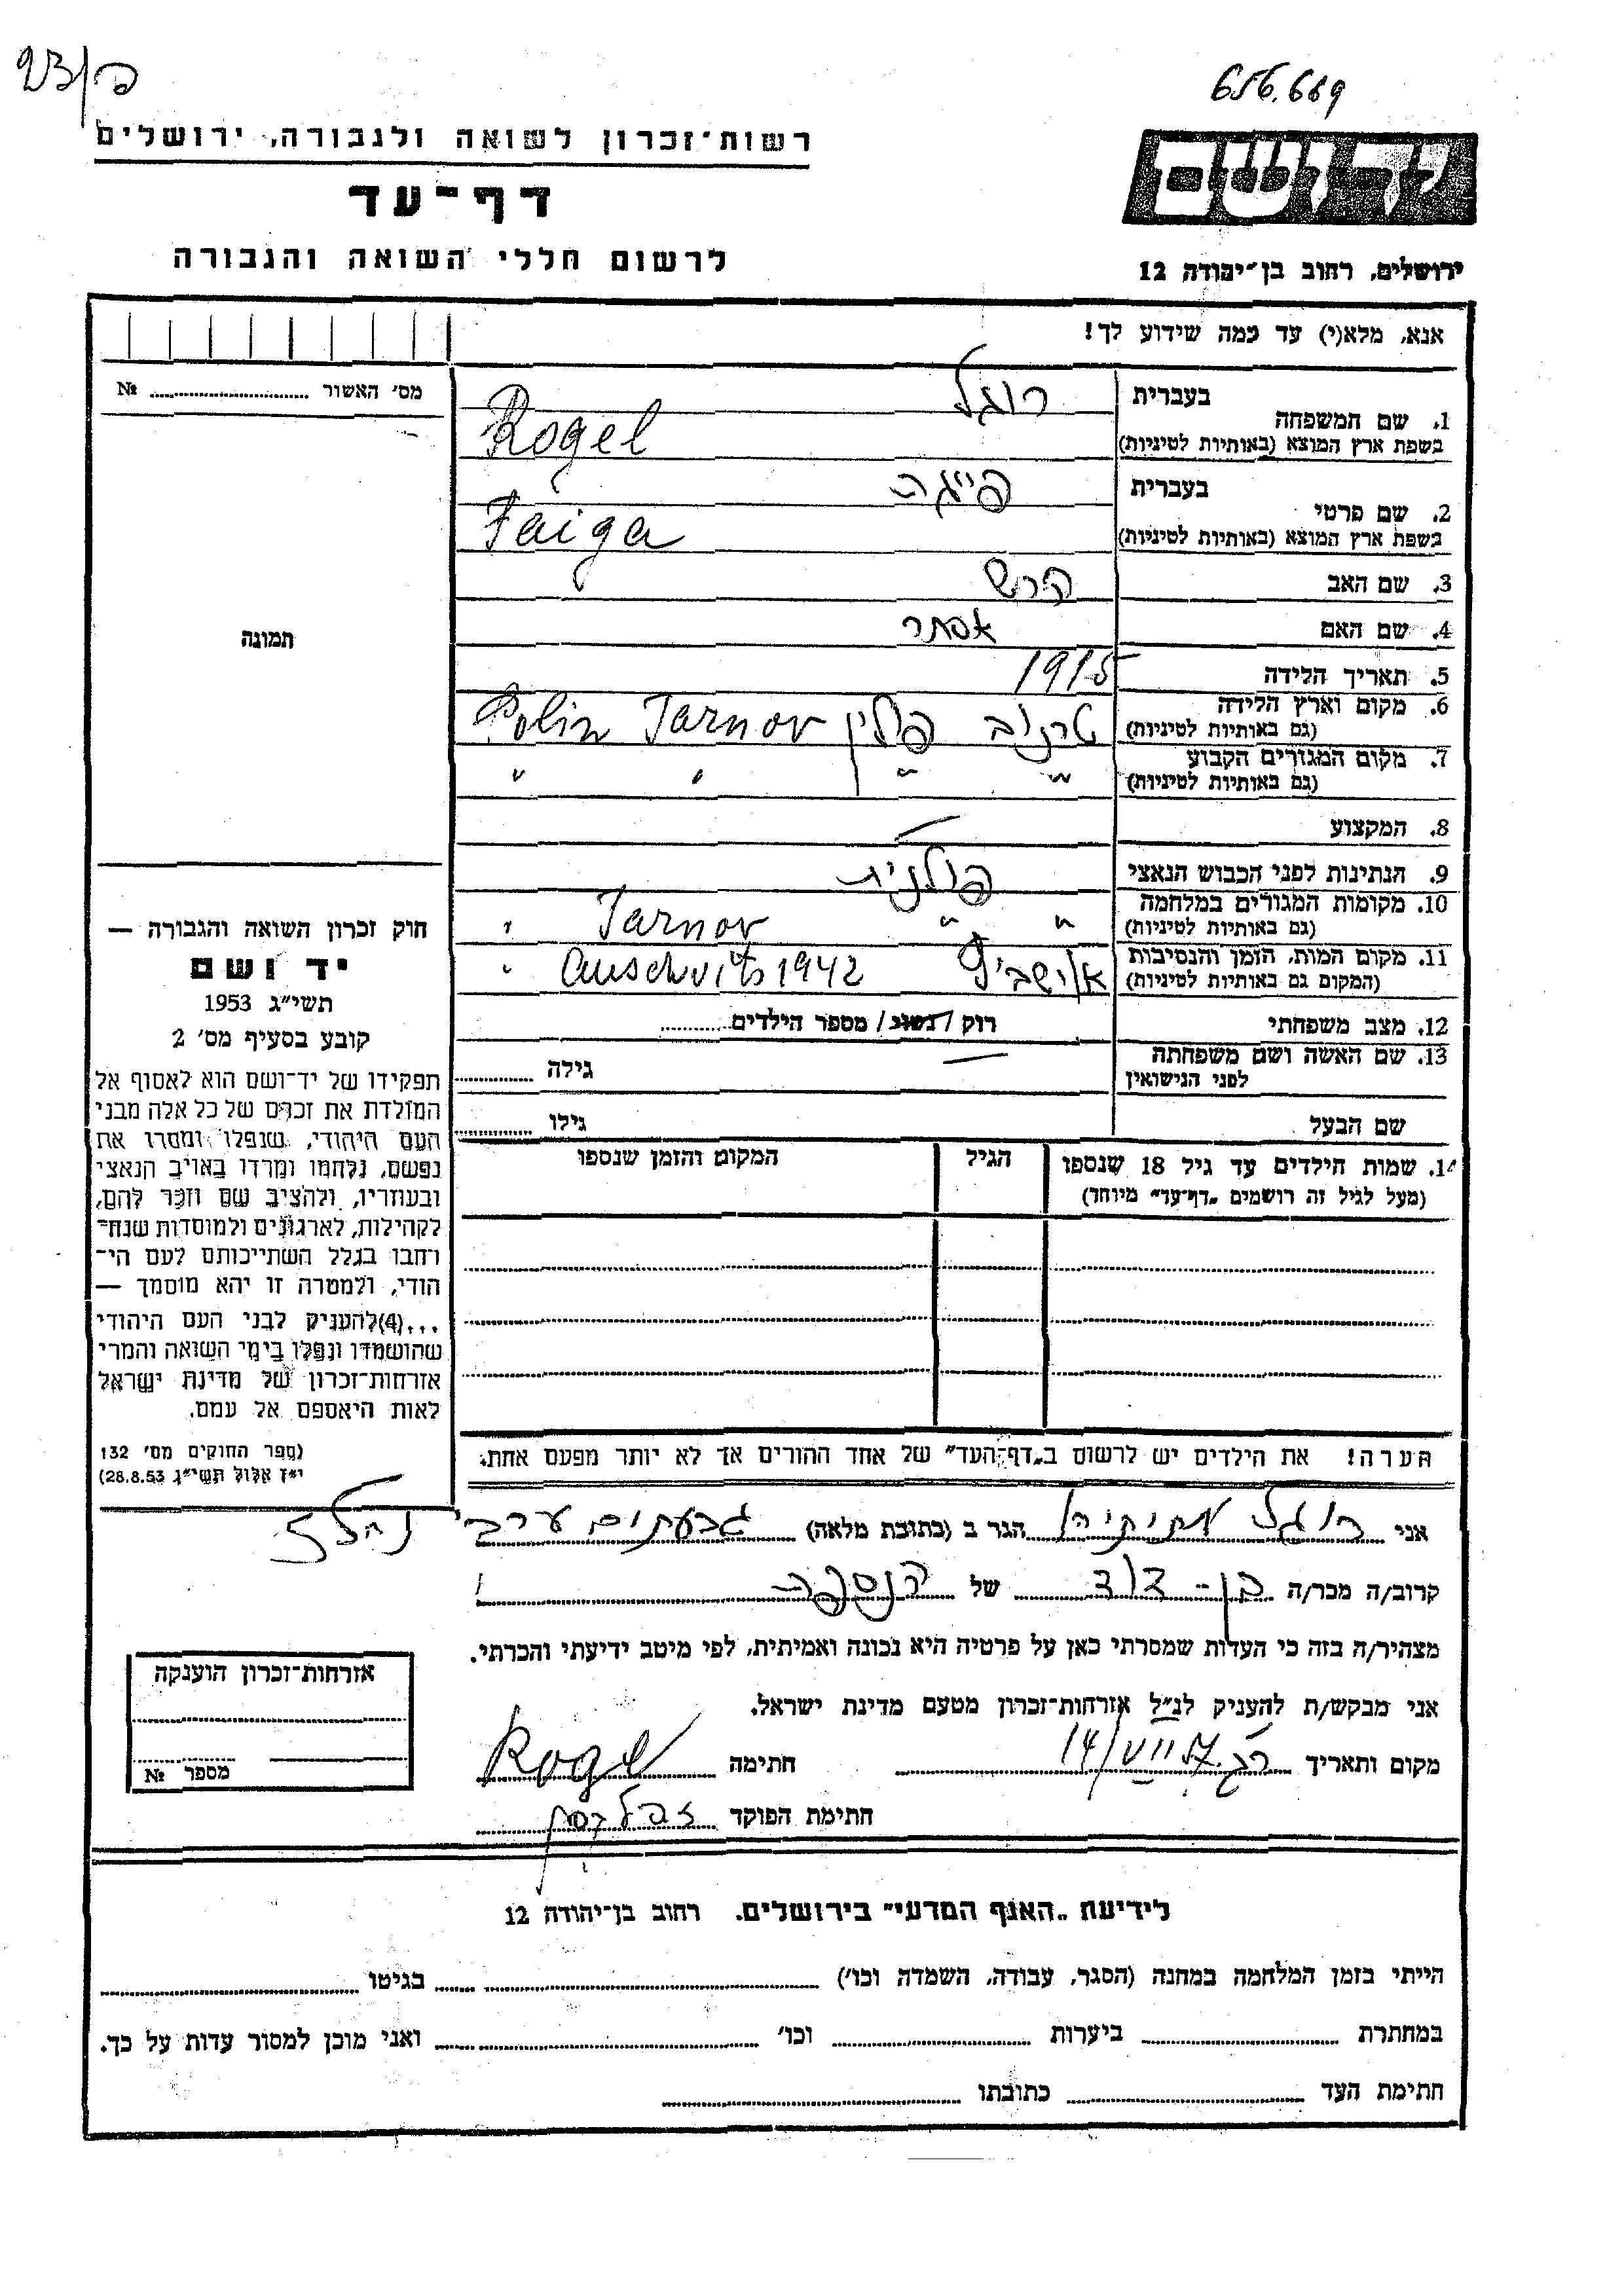 656.669
רשות־זכרון לשואה ולגבורה, ירושלים
יד ושם
דף־עד
לרשום חללי השואה והגבורה
ירושלים, רחוב בן־יהודה 12
אנא, מלא(י) עד כמה שידוע לך!
מס׳ האשור № 
1. שם המשפחה בעברית רוגל
בשפת ארץ המוצא (באותיות לטיניות) Rogel
2. שם פרטי בעברית פייגה
בשפת ארץ המוצא (באותיות לטיניות) Faiga
3. שם האב הרש
4. שם האם אסתר
5. תאריך הלידה 1915
6. מקום וארץ הלידה (גם באותיות לטיניות) טרנוב פולין Tarnov Polin
7. מקום המגורים הקבוע (גם באותיות לטיניות) " " " "
8. המקצוע —
9. הנתינות לפני הכבוש הנאצי פולנית
10. מקומות המגורים במלחמה (גם באותיות לטיניות) " " Tarnov "
11. מקום המות, הזמן והנסיבות (המקום גם באותיות לטיניות) אושביץ Auschvits 1942
12. מצב משפחתי רוק / נשוי / מספר הילדים
13. שם האשה ושם משפחתה לפני הנישואין — גילה
שם הבעל גילו
14. שמות הילדים עד גיל 18 שנספו הגיל המקום והזמן שנספו
(מעל לגיל זה רושמים „דף־עד״ מיוחד)
הערה! את הילדים יש לרשום ב„דף־העד״ של אחד ההורים אך לא יותר מפעם אחת.
תמונה
חוק זכרון השואה והגבורה —
יד ושם
תשי״ג 1953
קובע בסעיף מס׳ 2
תפקידו של יד־ושם הוא לאסוף אל
המולדת את זכרם של כל אלה מבני
העם היהודי, שנפלו ומסרו את
נפשם, נלחמו ומרדו באויב הנאצי
ובעוזריו, ולהציב שם וזכר להם,
לקהילות, לארגונים ולמוסדות שנח־
רחבו בגלל השתייכותם לעם הי־
הודי, ולמטרה זו יהא מוסמך —
...(4) להעניק לבני העם היהודי
שהושמדו ונפלו בימי השואה והמרי
אזרחות־זכרון של מדינת ישראל
לאות היאספם אל עמם.
(ספר החוקים מס׳ 132
י״ז אלול תשי״ג 28.8.53)
אני רוגל הגר ב (כתובת מלאה) גבעתים
קרוב/ה מכר/ה בן-דוד של הנספה
מצהיר/ה בזה כי העדות שמסרתי כאן על פרטיה היא נכונה ואמיתית, לפי מיטב ידיעתי והכרתי.
אני מבקש/ת להעניק לנ״ל אזרחות־זכרון מטעם מדינת ישראל.
מקום ותאריך ר״ג 14/VII 57 חתימה Rogel
חתימת הפוקד
אזרחות־זכרון הוענקה
מספר №
לידיעת „האגף המדעי״ בירושלים. רחוב בן־יהודה 12
הייתי בזמן המלחמה במחנה (הסגר, עבודה, השמדה וכו׳) בגיטו
במחתרת ביערות וכו׳ ואני מוכן למסור עדות על כך.
חתימת העד כתובתו